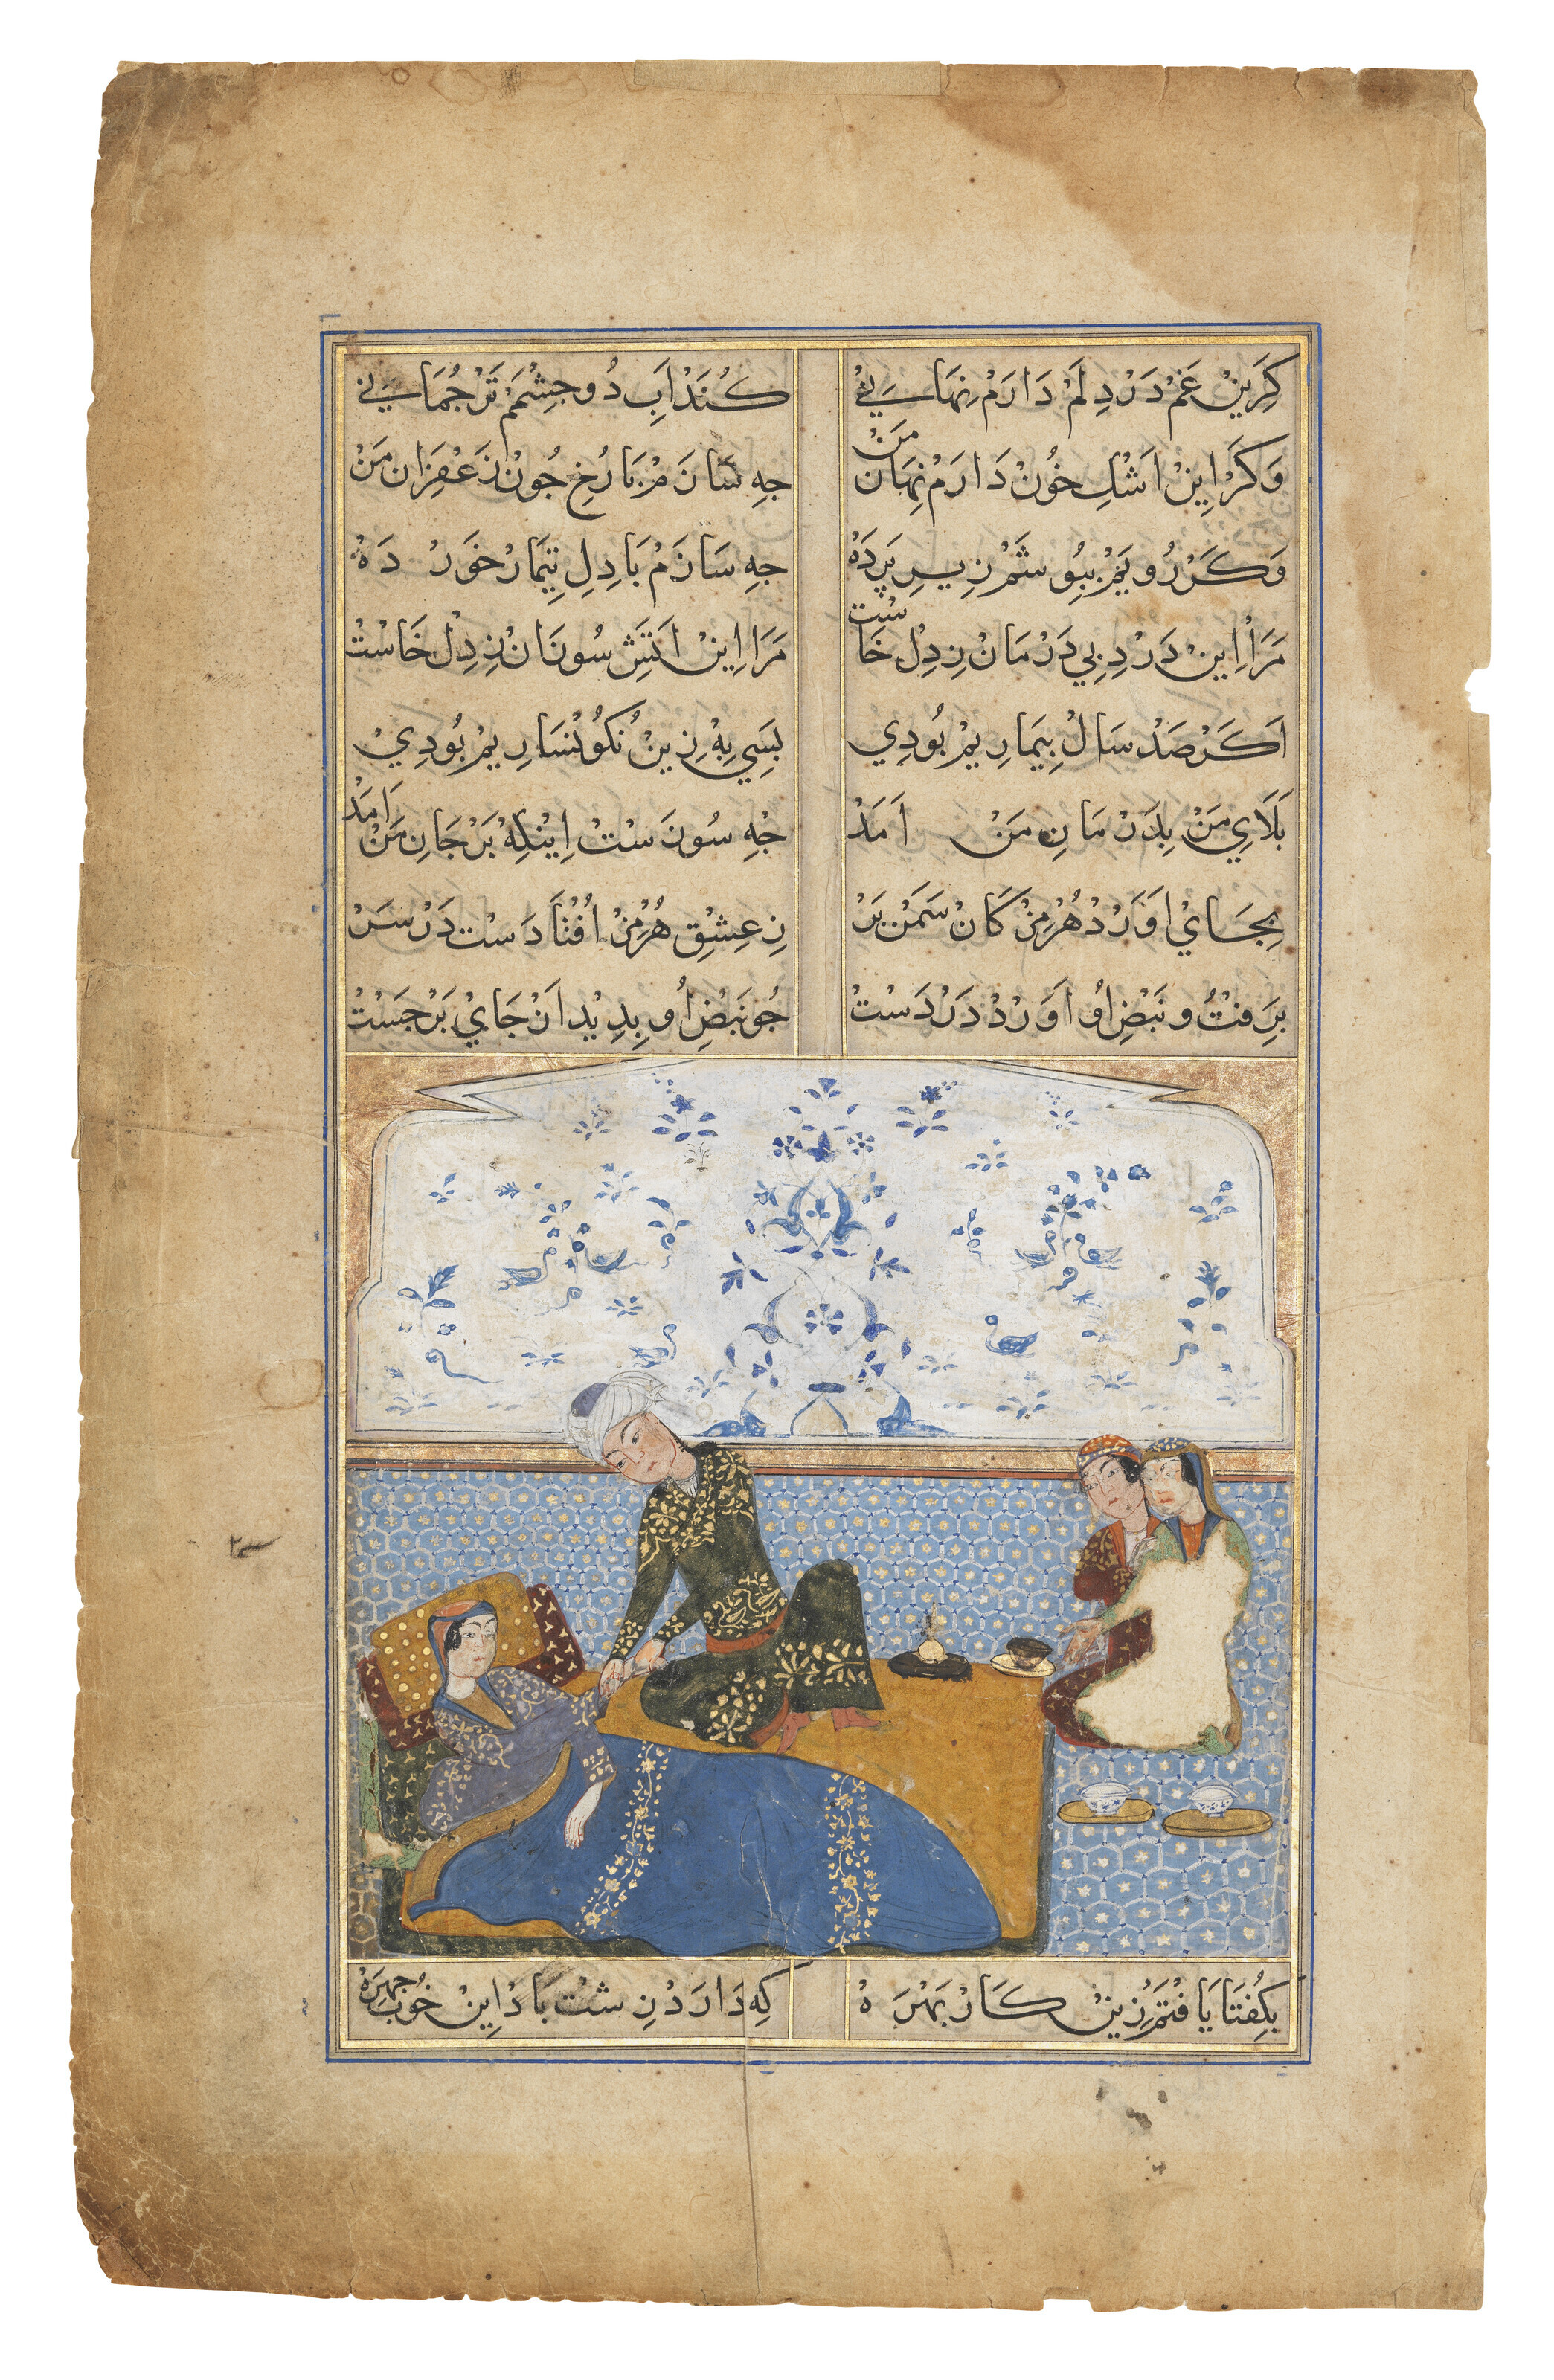 كَرِين غَمْ دَرْدِ دِلَمْ دَارَمْ نِهَانِي كُنَدْ ابِ دُو جِشْمَمْ تَرْجُمَانِي
وَكَرْ اِينْ اَشْكِ خُونْ دَارَمْ نِهَان مَنْ جِه سَازَمْ بَا رُخِ جُونْ زَعْفِرَان مَنْ
وَكَرْ رُويَمْ بِبُوشَمْ زِيرِ پَرْدَهْ جِه سَازَمْ بَا دِلِ تِيمَارْ خَوَرْدَهْ
مَرَا اِينْ دَرْدِ بِي دَرْمَانْ زِ دِلْ خَاسْت مَرَا اِينْ اَتَشِ سُوزَانْ زِ دِلْ خَاسْتْ
اَكَرْ صَدْ سَالْ بِيمَارِيمْ بُودِي بَسِي بِهْ زِينْ نُكُونْسَارِيمْ بُودِيْ
بَلَاي مَنْ بِدَرْمَانِ مَنْ اَمَدْ جِه سُوزَسْتْ اِينْكِهْ بَرْ جَانِ مَنْ اَمَدْ
بِجَايْ اوَرْدْ هُرْمُزْ كَانْ سَمَنْ بَرْ زِ عِشْقِ هُرْمُزْ اُفْتَادَسْت دَرْ سَرْ
بِرَفْتُ و نَبْضِ اُو اوَرْدْ دَرْ دَسْتْ جُو نَبْضِ اُو بِدِيدْ اَنْ جَايْ بَرْ جَسْتْ
بِكُفْتَا يَافْتَمْ زِينْ كَارْ بَهْرَهْ كِه دَارَدْ زِشْتْ بَادْ اِينْ خُوبْ جِهْرَهْ